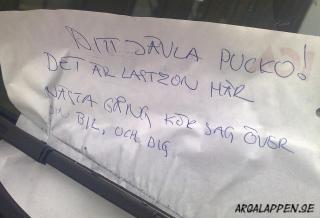 DITT JÄVLA PUCKO!
DET ÄR LASTZON HÄR
NÄSTA GÅNG KÖR JAG ÖVER
DIN BIL, OCH DIG
ARGALAPPEN.SE